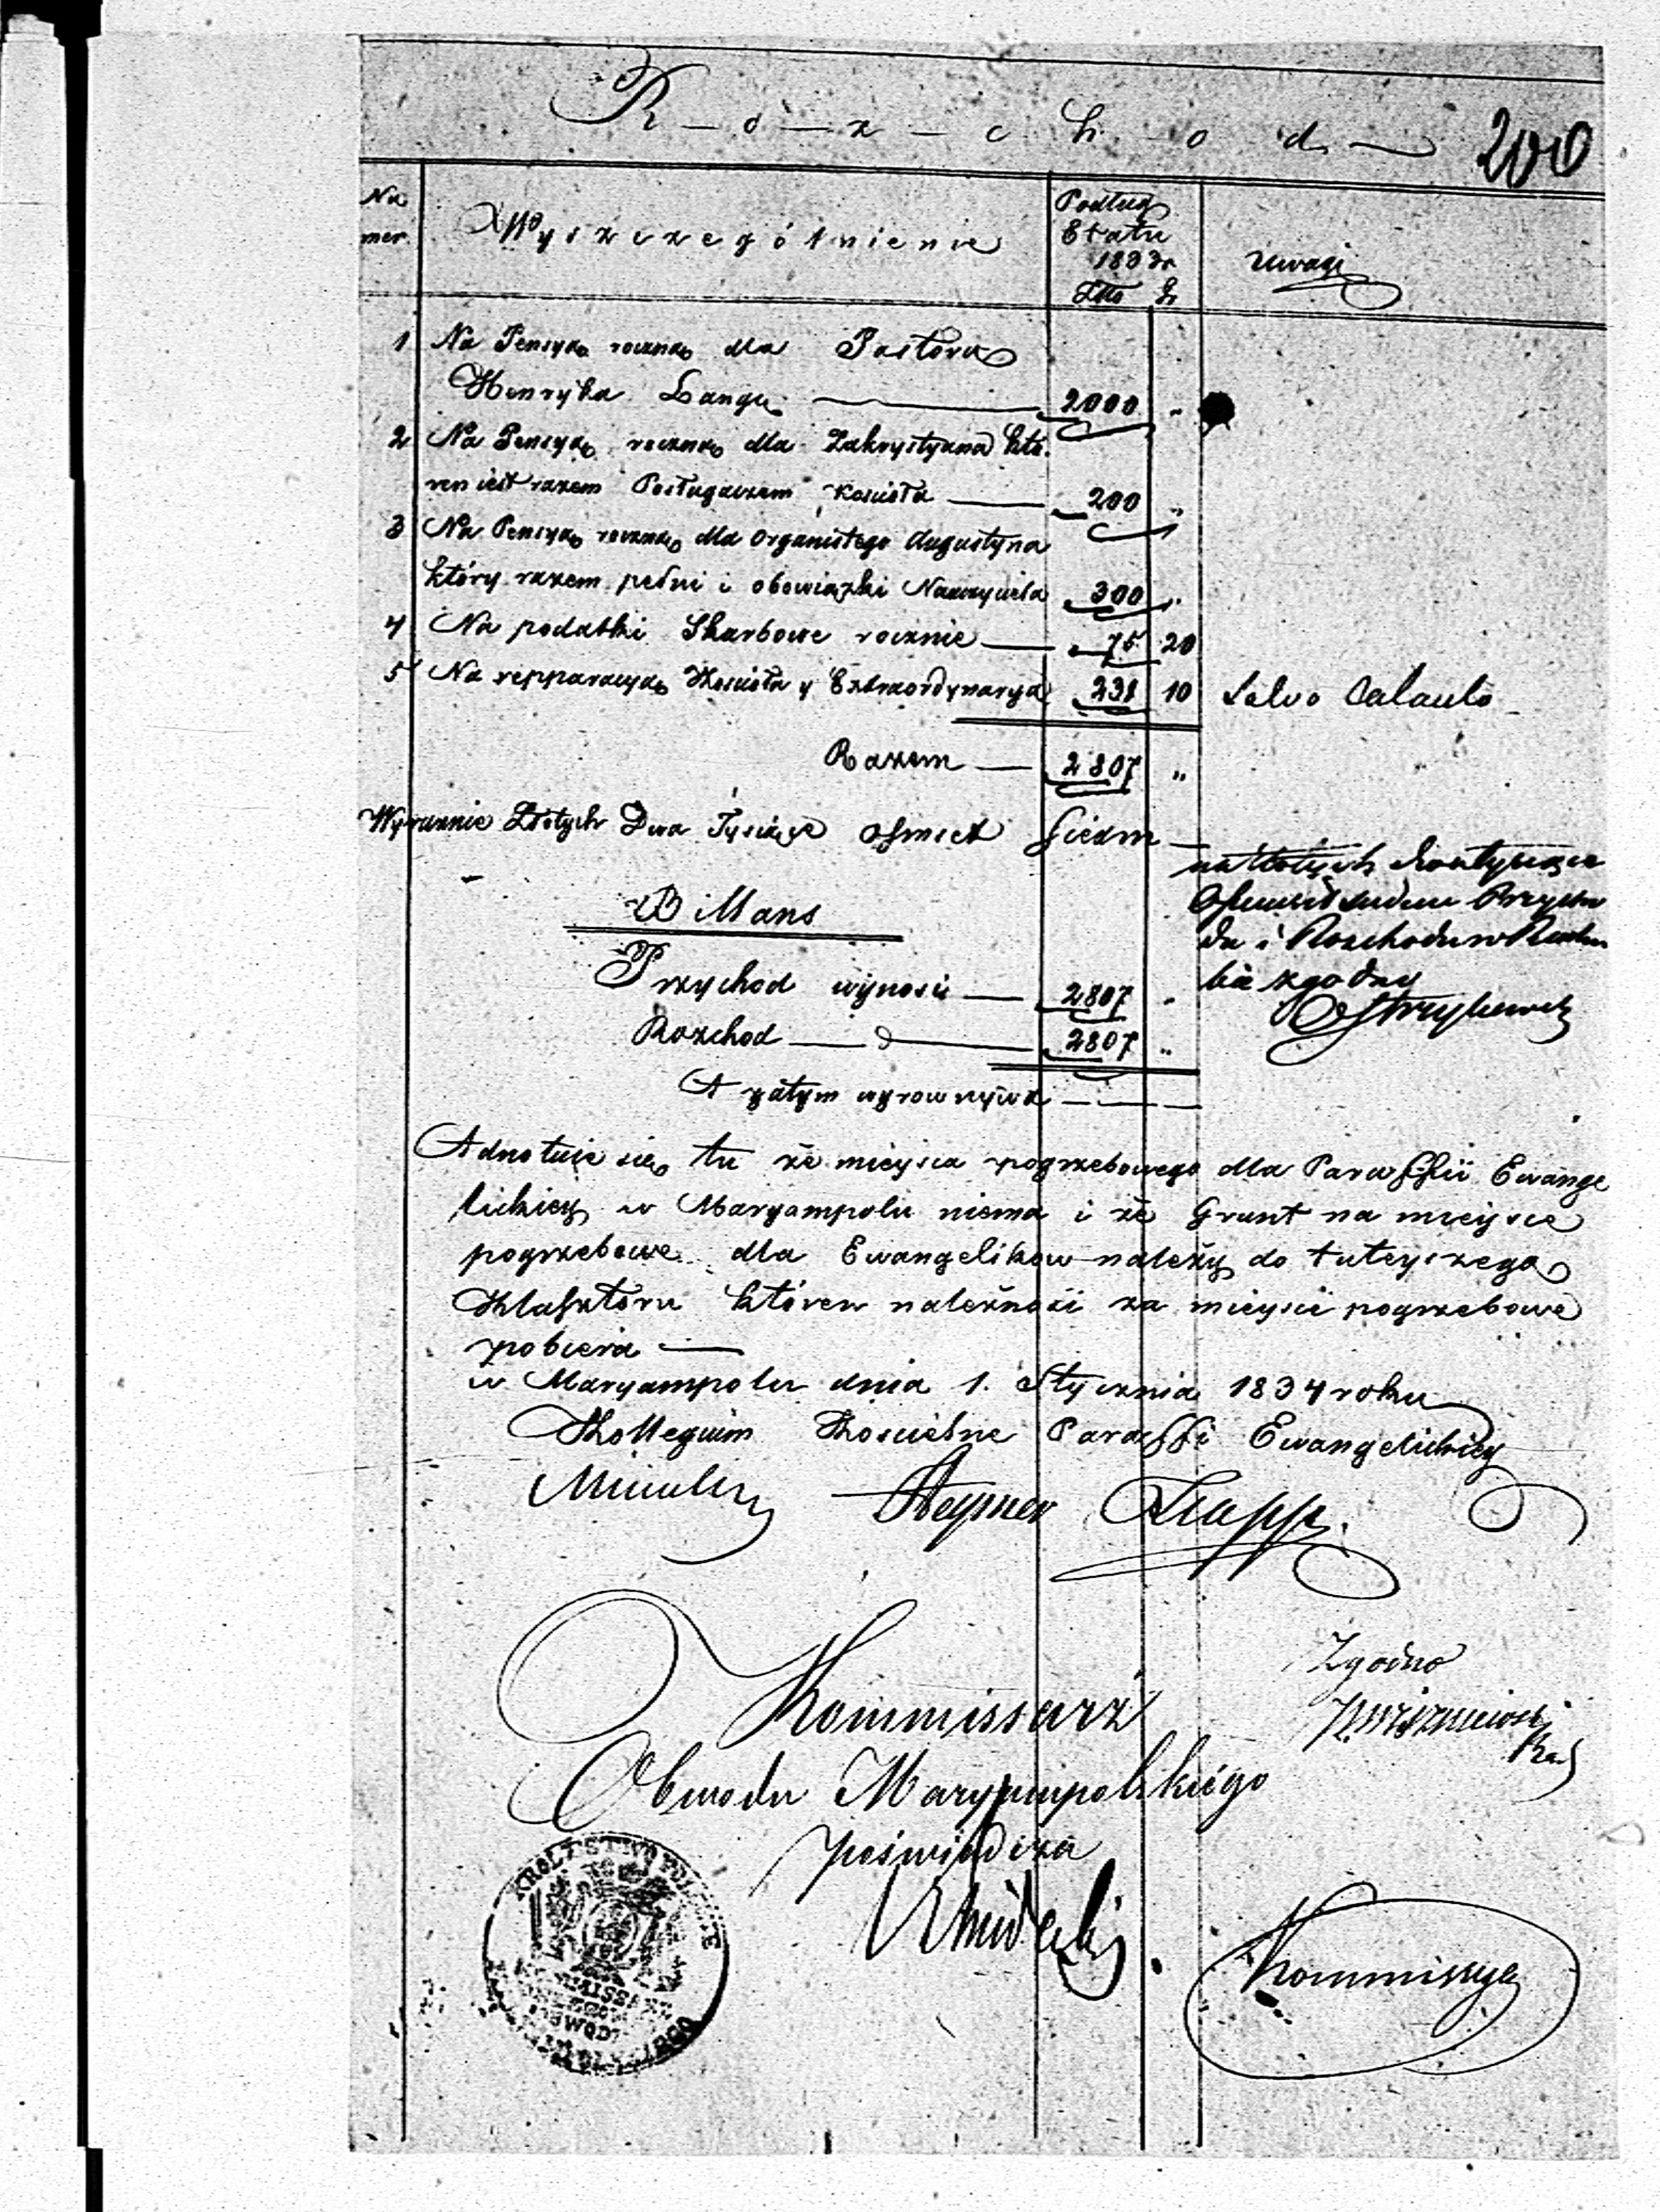 R-o-z-c-h-o-d
200
Nu
mer.
Wyszczególnienie
Podług
Etatu
1833r
Uwagi
Złto gr
1 Na Pensyą roczną dla Pastora
Henryka Lange 2000 "
2 Na Pensyą roczną dla Zakrystyana któ-
ren iest razem Posługaczem Kościoła 200 "
3 Na Pensyą roczną dla Organistego Augustyna
który razem pełni i obowiązki Nauczyciela 300 "
4 Na podatki Skarbowe rocznie 75 20
5 Na repparacyą Kościoła y Extraordynarya 231 10 Salvo Calculo
Razem 2807 "
Wyraznie Złotych Dwa Tysiące Ośmset Siedm
na Złotych dwatysiące
Ośmset siedem Przycho
du i Rozchodu w Rachu
bie zgodny
Billans
Przychod wynosi 2807 "
Rozchod 2807 "
A zatym wyrownywa
Adnotuie się tu że mieysca pogrzebowego dla Paraffii Ewange
lickiey w Maryampolu niema i że Grunt na mieysce
pogrzebowe dla Ewangelikow należy do tuteyszego
Klasztoru któren należności za mieysce pogrzebowe
pobiera
w Maryampolu dnia 1. Stycznia 1834 roku
Kollegium Kościelne Paraffi Ewangelickiey
Heyner Trapp.
Zgodno
Kommissarz
Obwodu Maryampolskiego
poświadcza
KROLESTWO POLSKIE
Kommissya